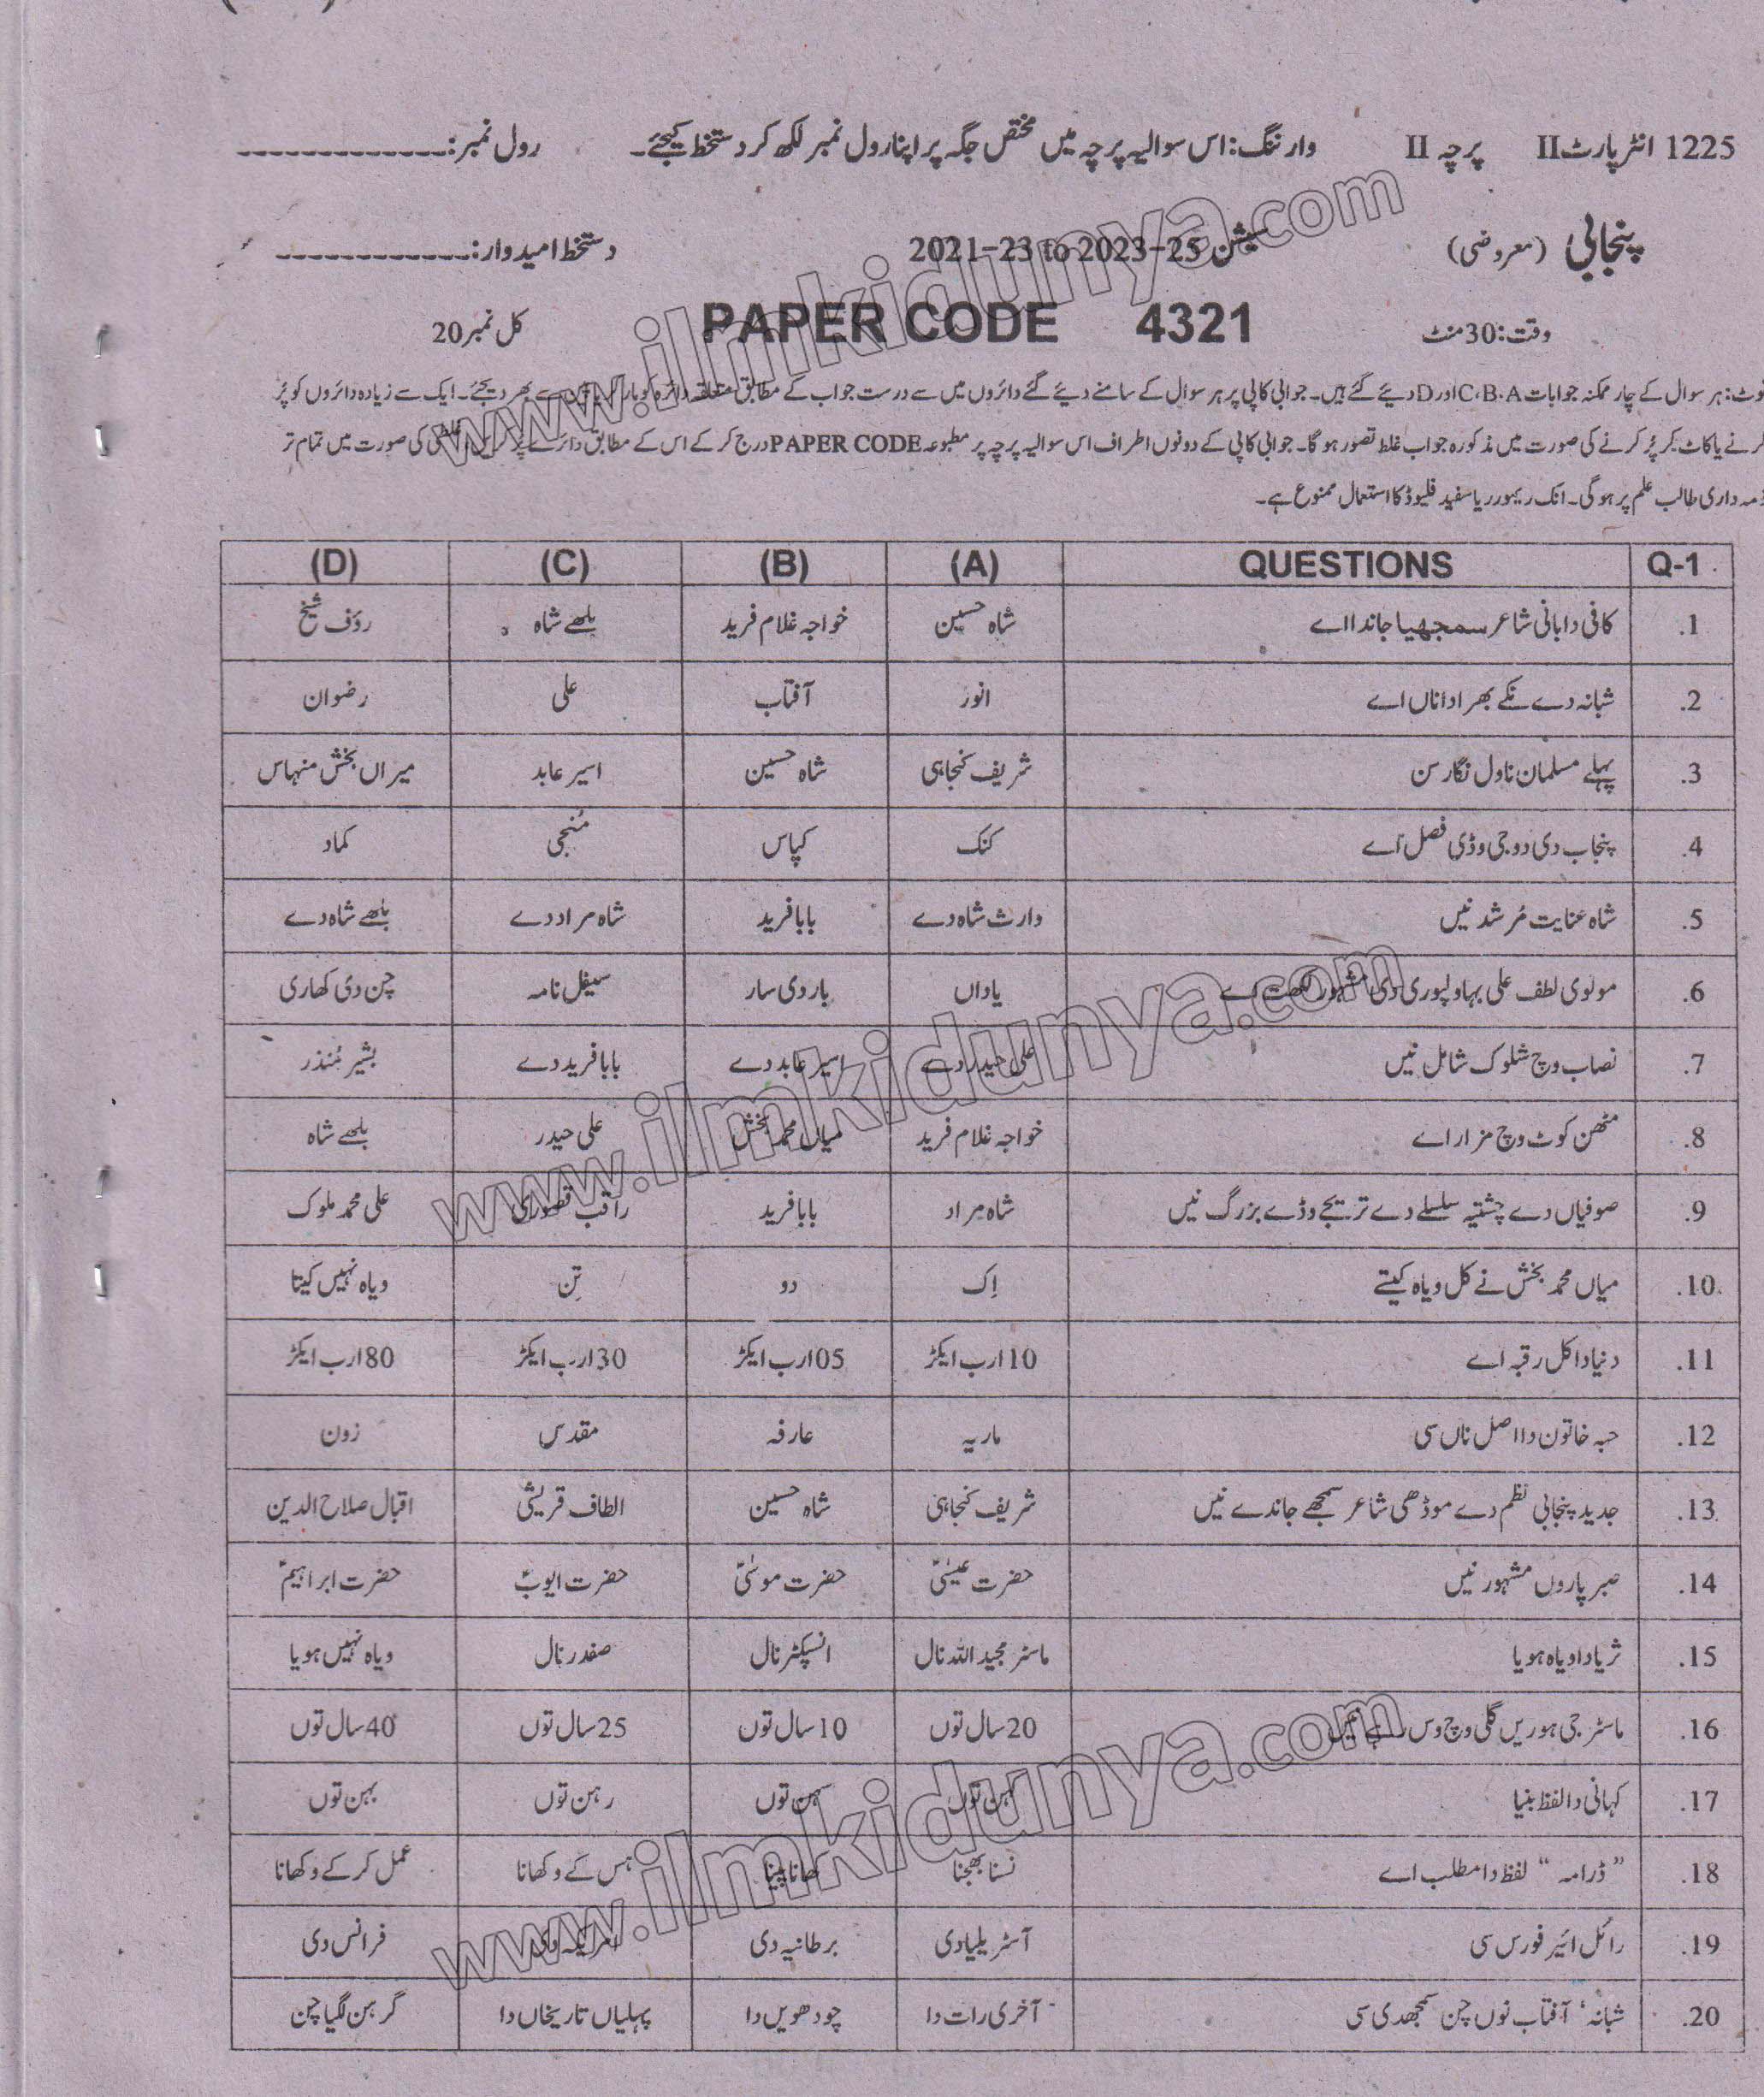 1225 انٹر پارٹ II پرچہ II وارننگ: اس سوالیہ پرچہ میں مختص جگہ پر اپنا رول نمبر لکھ کر دستخط کیجئے۔ رول نمبر: _____________
پنجابی (معروضی) سیشن 2021-23 to 2023-25 دستخط امیدوار: ____________
وقت: 30 منٹ PAPER CODE 4321 کل نمبر 20
وٹ: ہر سوال کے چار ممکنہ جوابات C،B،A اور D دیئے گئے ہیں۔ جوابی کاپی پر ہر سوال کے سامنے دیئے گئے دائروں میں سے درست جواب کے مطابق متعلقہ دائرہ کو مارکر یا پین سے بھر دیجئے۔ ایک سے زیادہ دائروں کو پُر
کرنے یا کاٹ کر پُر کرنے کی صورت میں مذکورہ جواب غلط تصور ہوگا۔ جوابی کاپی کے دونوں اطراف اس سوالیہ پرچہ پر مطبوعہ PAPER CODE درج کر کے اس کے مطابق دائرے پُر کریں۔ غلطی کی صورت میں تمام تر
ذمہ داری طالب علم پر ہوگی۔ انک ریمور ریا سفید فلیوڈ کا استعمال ممنوع ہے۔
Q-1 QUESTIONS (A) (B) (C) (D)
1. کافی دا بانی شاعر سمجھیا جاندا اے شاہ حسین خواجہ غلام فرید بلھے شاہ رؤف شیخ
2. شبانہ دے نکے بھرا دا ناں اے انور آفتاب علی رضوان
3. پہلے مسلمان ناول نگار سن شریف کنجاہی شاہ حسین اسیر عابد میراں بخش منہاس
4. پنجاب دی دوجی وڈی فصل اے کنک کپاس مُنجی کماد
5. شاہ عنایت مُرشد نیں وارث شاہ دے بابا فرید شاہ مراد دے بلھے شاہ دے
6. مولوی لطف علی بہاولپوری دی مشہور لکھت اے یاداں بار دی سار سیفل نامہ چن دی کھاری
7. نصاب وچ شلوک شامل نیں علی حیدر دے اسیر عابد دے بابا فرید دے بشیر مُنذر
8. مٹھن کوٹ وچ مزار اے خواجہ غلام فرید میاں محمد بخش علی حیدر بلھے شاہ
9. صوفیاں دے چشتیہ سلسلے دے تریجے وڈے بزرگ نیں شاہ مراد بابا فرید راقب قصوری علی محمد ملوک
10. میاں محمد بخش نے کل ویاہ کیتے اِک دو تِن ویاہ نہیں کیتا
11. دنیا دا کل رقبہ اے 10 ارب ایکڑ 05 ارب ایکڑ 30 ارب ایکڑ 80 ارب ایکڑ
12. حبہ خاتون دا اصل ناں سی ماریہ عارفہ مقدس زون
13. جدید پنجابی نظم دے موڈھی شاعر سمجھے جاندے نیں شریف کنجاہی شاہ حسین الطاف قریشی اقبال صلاح الدین
14. صبر پاروں مشہور نیں حضرت عیسٰیؑ حضرت موسٰیؑ حضرت ایوبؑ حضرت ابراہیمؑ
15. ثریا دا ویاہ ہویا ماسٹر مجید اللہ نال انسپکٹر نال صفدر نال ویاہ نہیں ہویا
16. ماسٹر جی ہوریں گلی وچ وس رہے نیں 20 سال توں 10 سال توں 25 سال توں 40 سال توں
17. کہانی دا لفظ بنیا کہن توں سہن توں رہن توں بہن توں
18. ”ڈرامہ“ لفظ دا مطلب اے نسنا بھجنا کھانا پینا ہس کے وکھانا عمل کر کے وکھانا
19. رائل ائیر فورس سی آسٹریلیا دی برطانیہ دی امریکہ دی فرانس دی
20. شبانہ، آفتاب نوں چن سمجھدی سی آخری رات دا چودھویں دا پہلیاں تاریخاں دا گرہن لگیا چن
www.ilmkidunya.com
www.ilmkidunya.com
www.ilmkidunya.com